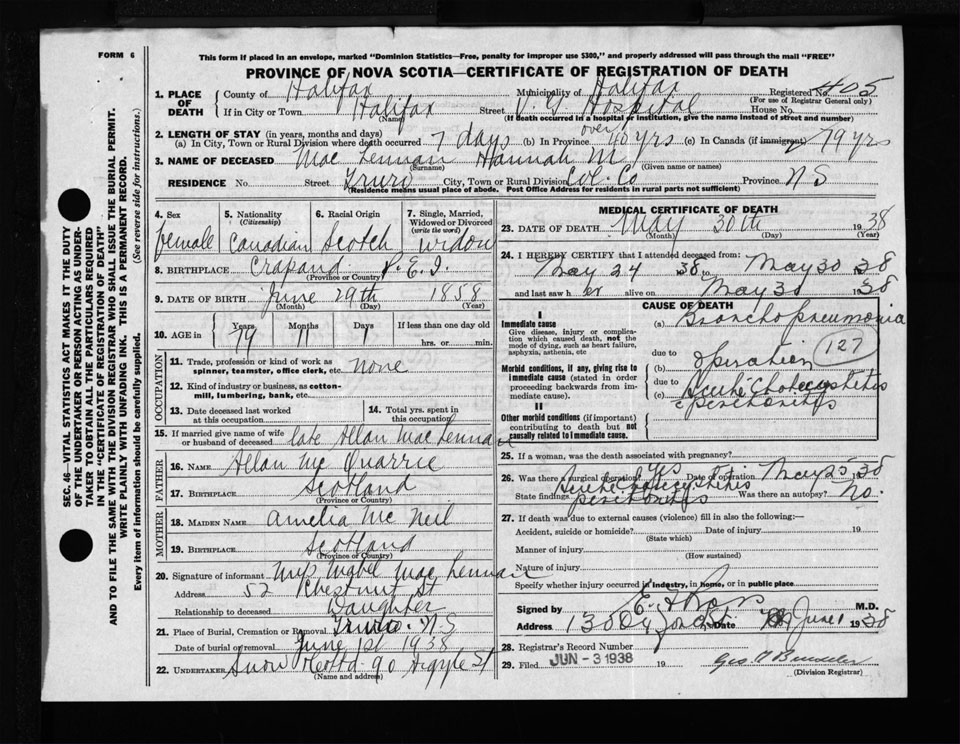 FORM 6
This form if placed in an envelope, marked "Dominion Statistics—Free, penalty for improper use $300," and properly addressed will pass through the mail "FREE"
PROVINCE OF NOVA SCOTIA—CERTIFICATE OF REGISTRATION OF DEATH
SEC. 46—VITAL STATISTICS ACT MAKES IT THE DUTY
OF THE UNDERTAKER OR PERSON ACTING AS UNDER-
TAKER TO OBTAIN ALL THE PARTICULARS REQUIRED
IN THE "CERTIFICATE OF REGISTRATION OF DEATH"
AND TO FILE THE SAME WITH THE DIVISION REGISTRAR WHO SHALL ISSUE THE BURIAL PERMIT.
WRITE PLAINLY WITH UNFADING INK. THIS IS A PERMANENT RECORD.
Every item of information should be carefully supplied. (See reverse side for instructions.)
1. PLACE OF DEATH County of Halifax Municipality of Halifax Registered No. 405
(For use of Registrar General only)
If in City or Town Halifax Street V. G. Hospital House No.
(Name) (If death occurred in a hospital or institution, give the name instead of street and number)
2. LENGTH OF STAY (in years, months and days)
(a) In City, Town or Rural Division where death occurred 7 days (b) In Province over 40 yrs (c) In Canada (if immigrant) 79 yrs
3. NAME OF DECEASED Mac Lennan Hannah M
(Surname) (Given name or names)
RESIDENCE No. Street Truro City, Town or Rural Division Col. Co Province N S
(Residence means usual place of abode. Post Office Address for residents in rural parts not sufficient)
4. Sex 5. Nationality (Citizenship) 6. Racial Origin 7. Single, Married, Widowed or Divorced (write the word)
female Canadian Scotch widow
8. BIRTHPLACE Crapaud P.E.I.
(Province or Country)
9. DATE OF BIRTH June 29th 1858
(Month) (Day) (Year)
10. AGE in Years 79 Months 11 Days 1 If less than one day old hrs. or min.
OCCUPATION
11. Trade, profession or kind of work as spinner, teamster, office clerk, etc. none
12. Kind of industry or business, as cotton-mill, lumbering, bank, etc.
13. Date deceased last worked at this occupation 14. Total yrs. spent in this occupation
15. If married give name of wife or husband of deceased late Allan MacLennan
FATHER
16. NAME Allan Mc Quarrie
17. BIRTHPLACE Scotland
(Province or Country)
MOTHER
18. MAIDEN NAME Amelia Mc Neil
19. BIRTHPLACE Scotland
(Province or Country)
20. Signature of informant Mabel MacLennan
Address 52 Chestnut St
Relationship to deceased Daughter
21. Place of Burial, Cremation or Removal Truro. N S
Date of burial or removal June 1st 1938
22. UNDERTAKER Snow 90 Argyle St
(Name and address)
MEDICAL CERTIFICATE OF DEATH
23. DATE OF DEATH May 30th 1938
(Month) (Day) (Year)
24. I HEREBY CERTIFY that I attended deceased from:
May 24 1938 to May 30 1938
and last saw her alive on May 30 1938
CAUSE OF DEATH
I
Immediate cause (a) Bronchopneumonia
Give disease, injury or complication which caused death, not the mode of dying, such as heart failure, asphyxia, asthenia, etc
due to
Morbid conditions, if any, giving rise to immediate cause (stated in order proceeding backwards from immediate cause).
(b) operation 127
due to
(c) acute cholecystitis
c̄ peritonitis
II
Other morbid conditions (if important) contributing to death but not causally related to immediate cause.
25. If a woman, was the death associated with pregnancy?
26. Was there a surgical operation? yes Date of operation May 25 1938
State findings acute cholecystitis peritonitis Was there an autopsy? no.
27. If death was due to external causes (violence) fill in also the following:—
Accident, suicide or homicide? Date of injury 19
(State which)
Manner of injury
(How sustained)
Nature of injury
Specify whether injury occurred in industry, in home, or in public place
Signed by E. F. Ross M.D.
Address 138 Date June 1 1938
28. Registrar's Record Number
29. Filed JUN - 3 1938 19
(Division Registrar)